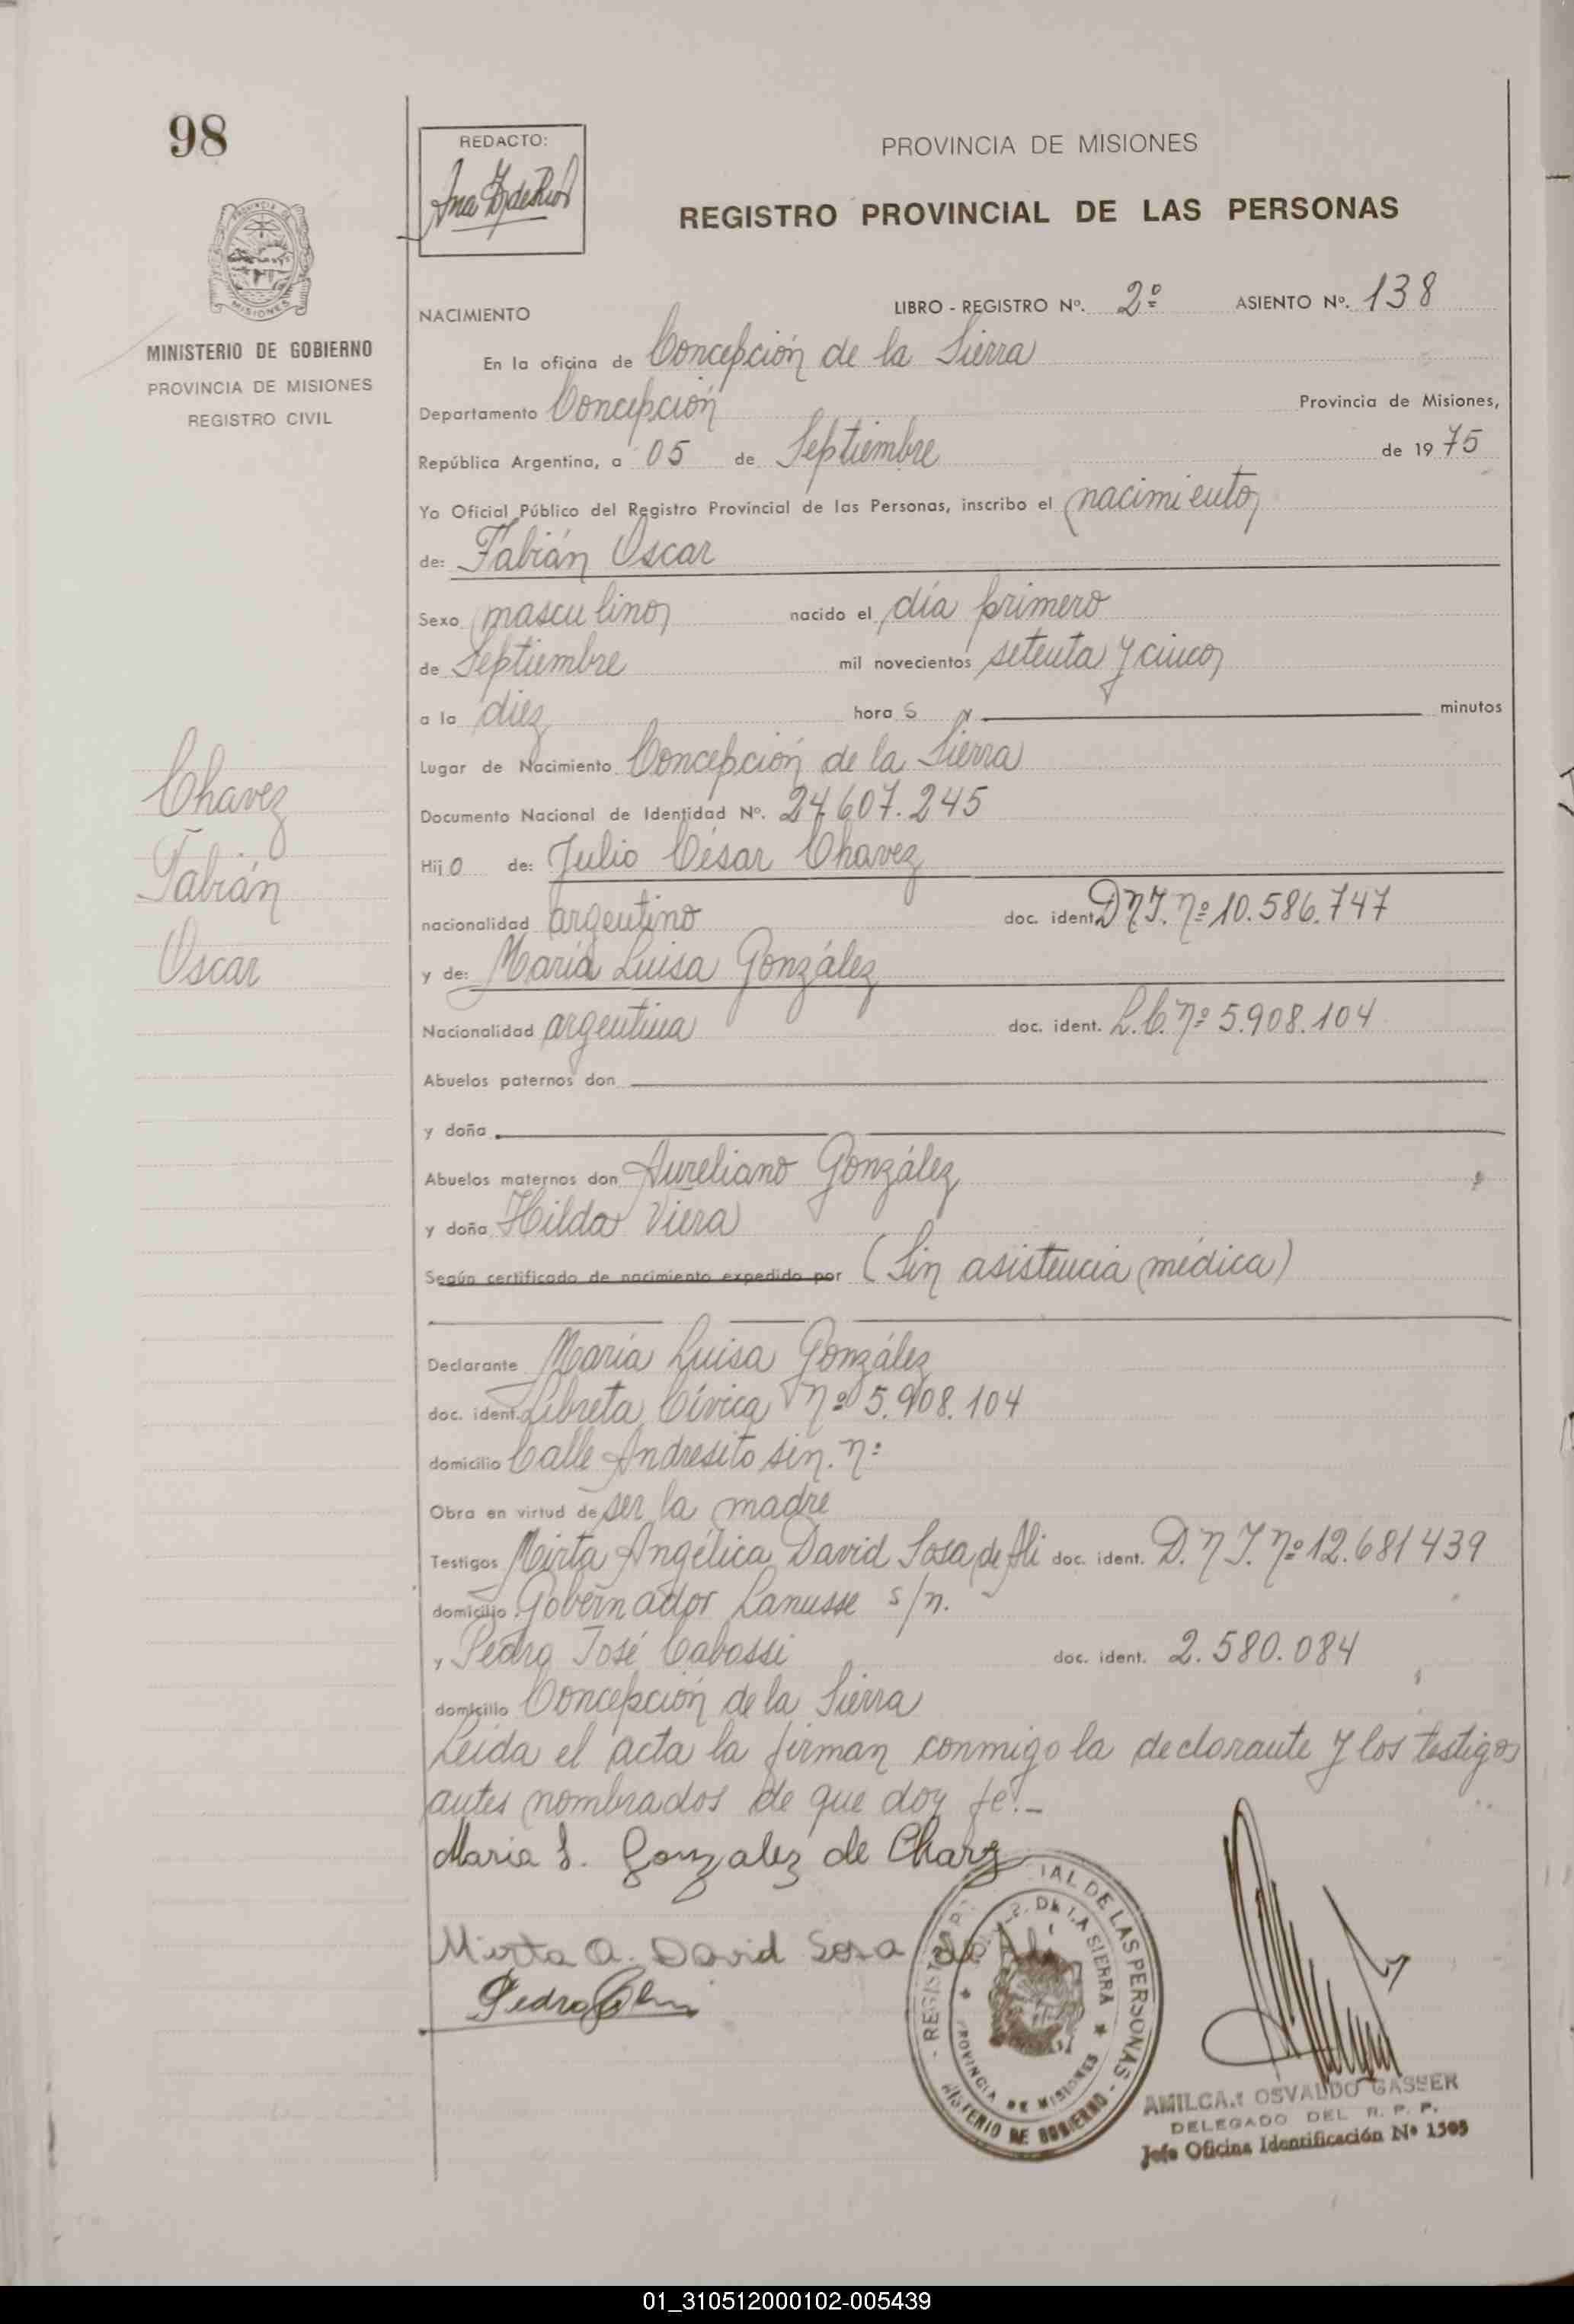 98
REDACTO:
PROVINCIA DE MISIONES
REGISTRO PROVINCIAL DE LAS PERSONAS
PROVINCIA DE
MISIONES
MINISTERIO DE GOBIERNO
PROVINCIA DE MISIONES
REGISTRO CIVIL
NACIMIENTO
LIBRO - REGISTRO Nº. 2º ASIENTO Nº. 138
En la oficina de Concepción de la Sierra
Departamento Concepción Provincia de Misiones,
República Argentina, a 05 de Septiembre de 1975
Yo Oficial Público del Registro Provincial de las Personas, inscribo el nacimiento
de: Fabián Oscar
Sexo masculino nacido el día primero
de Septiembre mil novecientos setenta y cinco
a la diez hora s y minutos
Lugar de Nacimiento Concepción de la Sierra
Documento Nacional de Identidad Nº. 24.607.245
Chavez
Fabián
Oscar
Hijo de: Julio César Chavez
nacionalidad argentino doc. ident. D.N.I. nº 10.586.747
y de: María Luisa González
Nacionalidad argentina doc. ident. L.C. nº 5.908.104
Abuelos paternos don
y doña
Abuelos maternos don Aureliano González
y doña Hilda Viera
Según certificado de nacimiento expedido por (Sin asistencia médica)
Declarante María Luisa González
doc. ident. Libreta Cívica nº 5.908.104
domicilio Calle Andresito sin. nº
Obra en virtud de ser la madre
Testigos Mirta Angélica David Sosa de Ali doc. ident. D.N.I. nº 12.681439
domicilio Gobernador Lanusse s/n.
y Pedro José Cabossi doc. ident. 2.580.084
domicilio Concepción de la Sierra
Leida el acta la firman conmigo la declarante y los testigos
antes nombrados de que doy fe.-
Maria L. Gonzalez de Chavz
Mirta A. David Sosa de Ali
Pedro
IAL DE LAS PERSONAS - MINISTERIO DE GOBIERNO - REGIST
DE LA SIERRA
PROVINCIA DE MISIONES
AMILCAR OSVALDO GASSER
DELEGADO DEL R. P. P.
Jefe Oficina Identificación Nº 1505
01_310512000102-005439